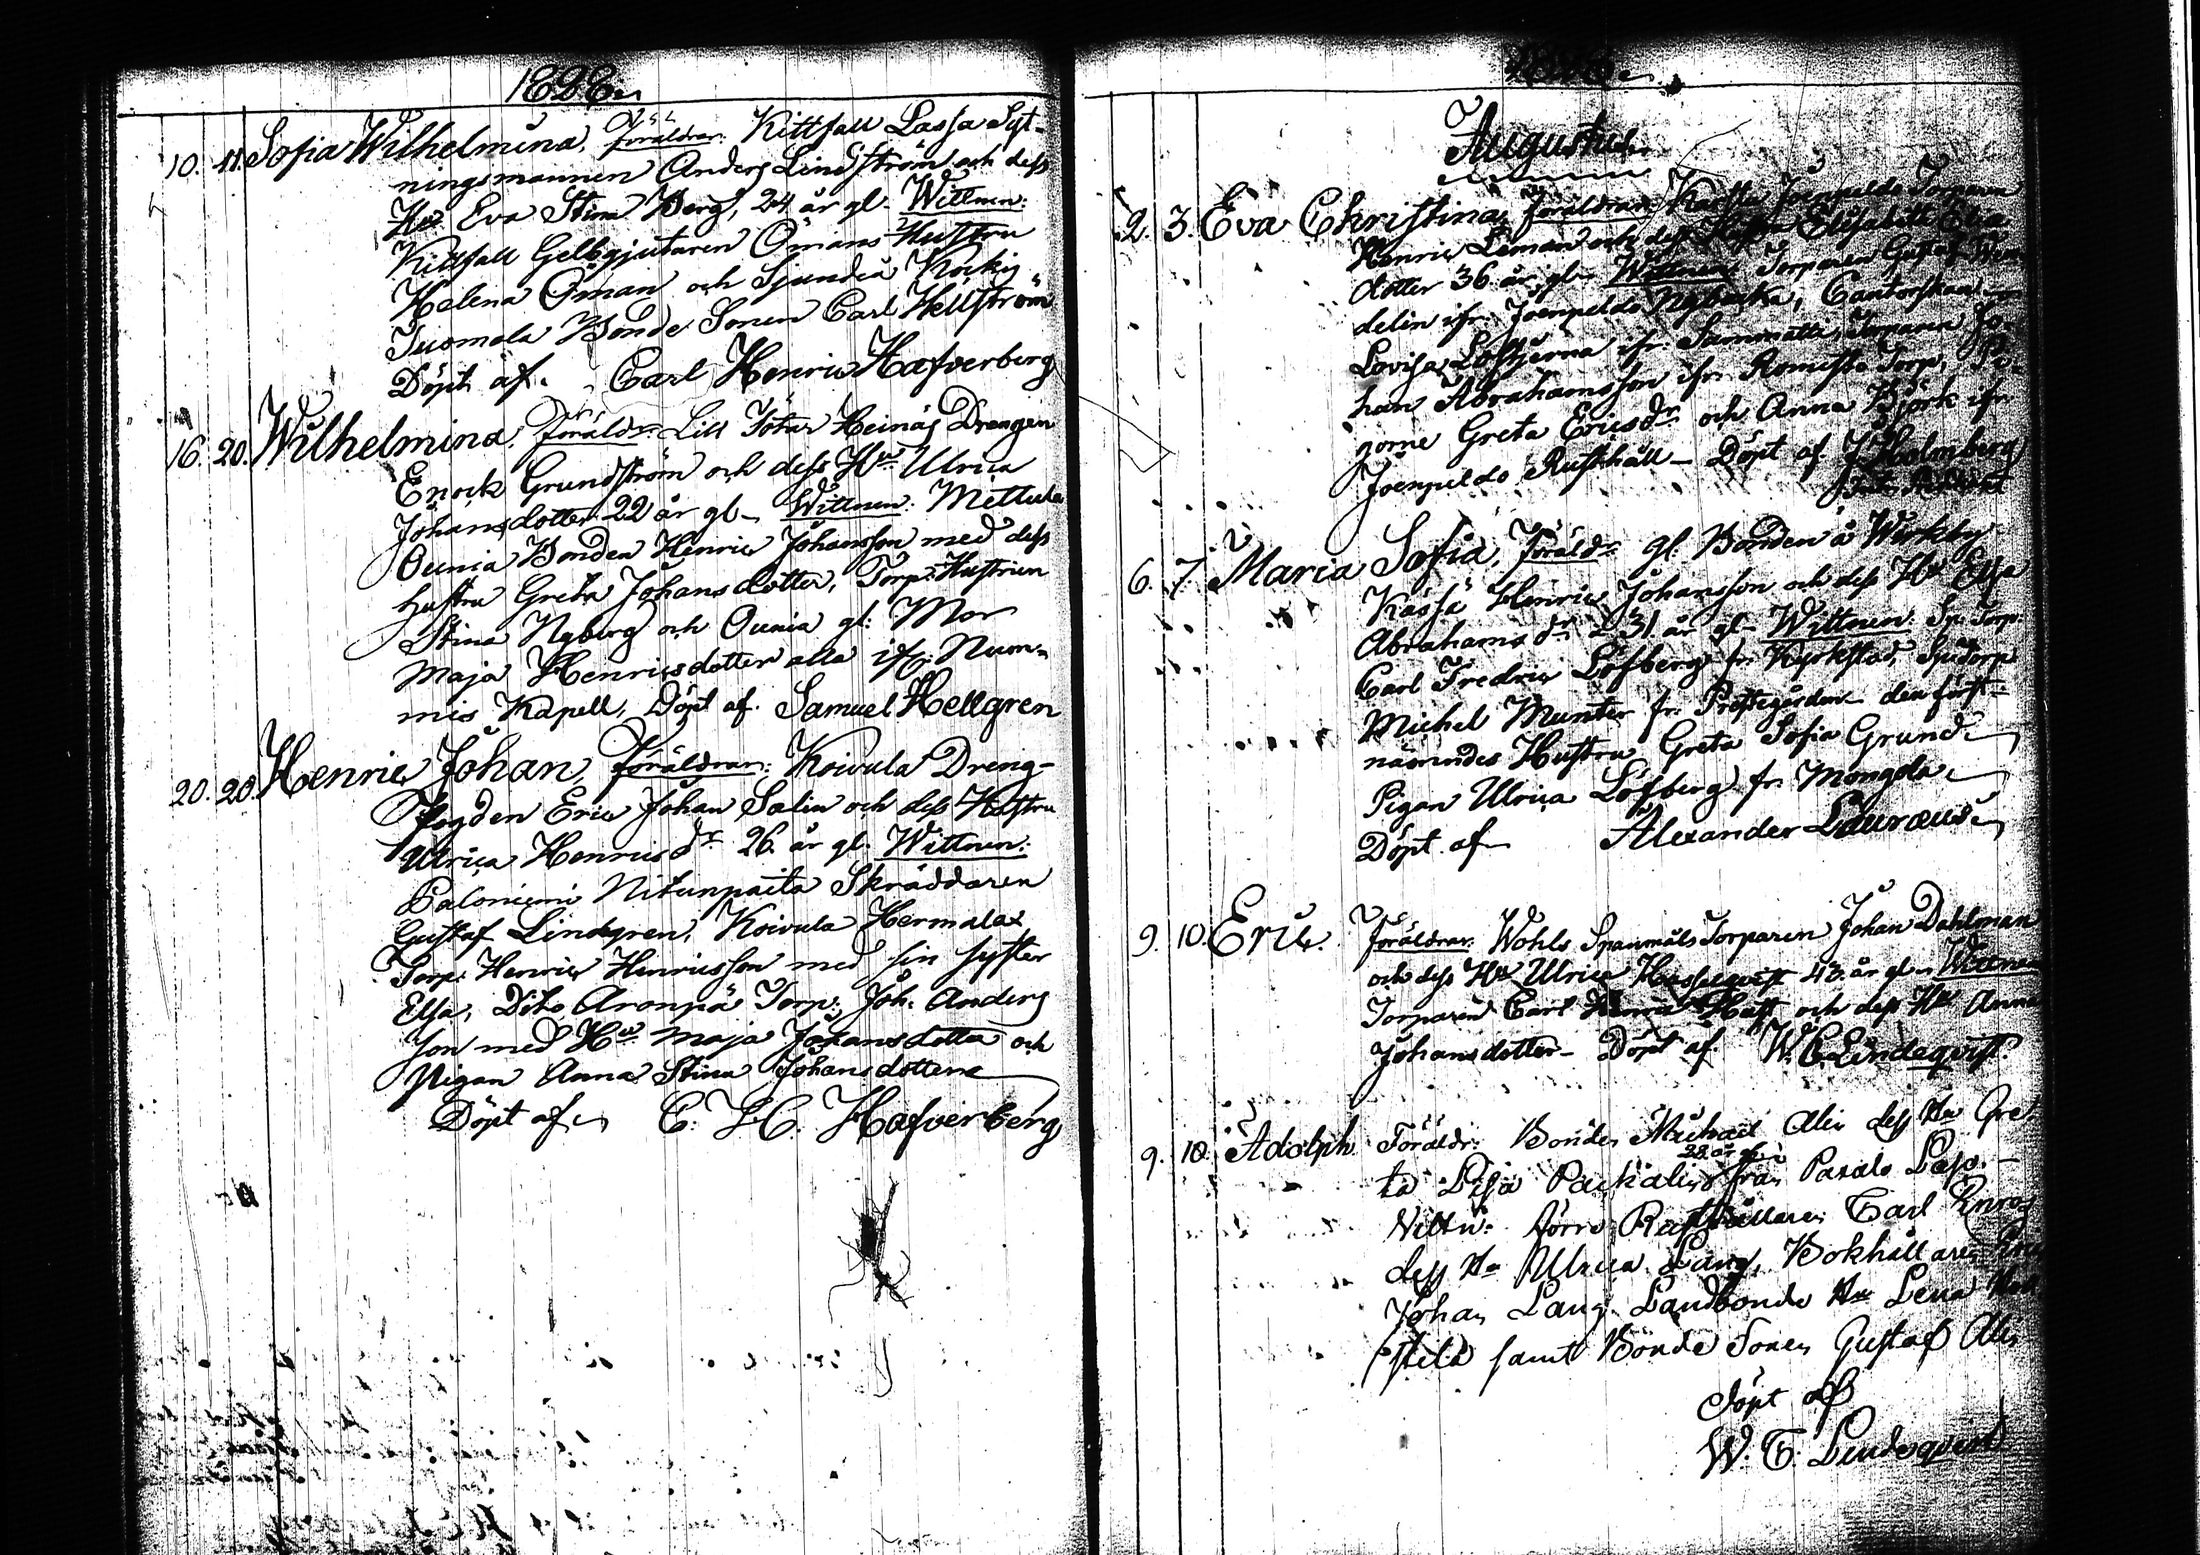 1828
10. 11. Sofia Wilhelmina, föräldrar: Kittfall Lassa Syt-
ningsmannen Anders Lindström och dess
Hu Eva Stina Berg, 24 år gl. Wittnen:
Kittfall Gelbgjutaren Ömans Hustru
Helena Öman och Sjundeå
Tuomala Bonde Sonen Carl Hellström
Döpt af. Carl Henric Hafverberg
16. 20. Wilhelmina, föräldr: Lill Heinäs Drengen
Enock Grundström och dess Hu Ulrica
Johansdotter 22 år gl. Wittnen:
Ounia Bonden Henric Johansson med dess
hustru Greta Johansdotter, Torp. Hustrun
Stina Nyberg och Ounia gl: Mor
Maja Henricsdotter alla ifr. Num-
mis Kapell, Döpt af. Samuel Hellgren
20. 20. Henric Johan, föräldrar: Koivula Dreng-
Fogden Eric Johan Salin och dess Hustru
Ulrica Henricsdr 26 år gl. Wittnen:
Paloniemi Skräddaren
Gustaf Lindgren, Koivula Hermala
Torp. Henric Henricsson med sin syster
Elsa, Dito Aronpä Torp. Joh. Anders
son med Hu Maja Johansdotter och
Pigan Anna Stina Johansdotter
Döpt af C. H. Hafverberg
Augustus
2. 3. Eva Christina, föräldrar: Joenpeldo Torparen
Henric Leman och dess Elisabeth
dotter 36 år gl. Wittnen: Torparen Gustaf
delin ifr. Joenpeldo Nybacka, Cantorskan
Lovisa ifr. Sammatti, Jo-
han Abrahamsson ifr. Torp, Pi-
gorne Greta Ericsdr och Anna Björk ifr.
Joenpeldo Rusthåll – Döpt af J Holmberg
6. 7. Maria Sofia, föräldr gl. Bonden å Wirkby
Kassa Henric Johansson och dess Hu Elsa
Abrahamsdr 31 år gl. Wittnen: Sp. Torp.
Carl Fredric Löfberg fr. Kyrkstad, Sp. Torp.
Michel Munter fr. Prestegården den först-
nämndes Hustru Greta Sofia Grund
Pigan Ulrica Löfberg fr. Mongola
Döpt af Alexander Lauraeus
9. 10. Eric. föräldrar: Wohls Spanmåls Torparen Johan Dahlman
och dess Hu Ulrica Hasselqvist 43 år gl. Wittnen
Torparen Carl Henric och dess Hu Anna
Johansdotter – Döpt af. W. E. Lindeqvist.
9. 10. Adolph Föräldr: Bonden Michael Alin dess Hu Gre-
28 år gl.
ta Lisa Packalin från Paxalo Lojo. –
Vittn: förre Rusthållaren Carl
dess Hu Ulrica Lang, Bokhållaren
Johan Lang. Landbonde Hu Lena
samt Bonde Sonen Gustaf Alin
döpt af
W. E. Lindeqvist